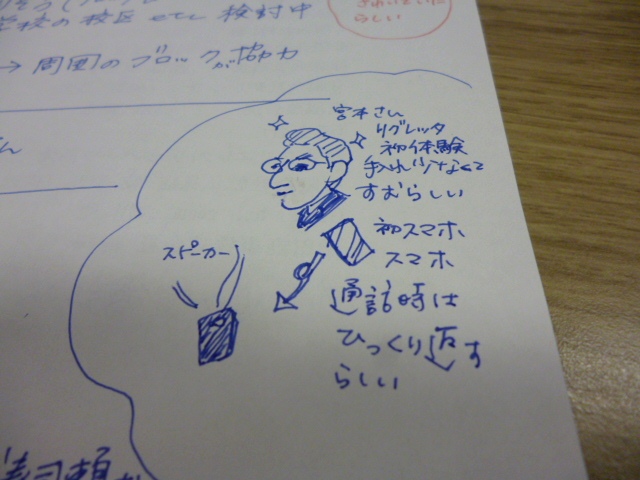 学校の校区 etc 検討中
らしい
→ 周囲のブロックが協力
宮本さん
リグレッタ
初体験
手入れ少なくて
すむらしい
初スマホ
スマホ
スピーカー
通話時は
ひっくり返す
らしい